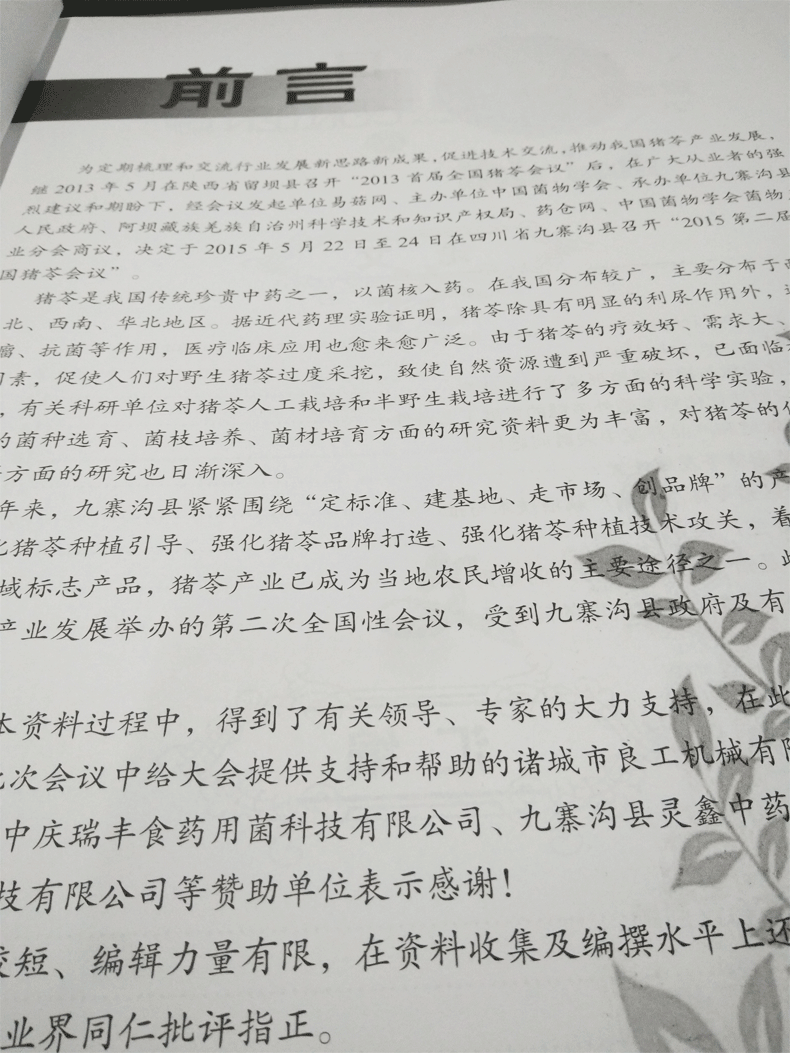 前言
为定期梳理和交流行业发展新思路新成果,促进技术交流,推动我国猪苓产业发展,
继2013年5月在陕西省留坝县召开“2013首届全国猪苓会议”后,在广大从业者的强
烈建议和期盼下,经会议发起单位易菇网、主办单位中国菌物学会、承办单位九寨沟县
人民政府、阿坝藏族羌族自治州科学技术和知识产权局、药仓网、中国菌物学会菌物
业分会商议,决定于2015年5月22日至24日在四川省九寨沟县召开“2015第二届
国猪苓会议”。
猪苓是我国传统珍贵中药之一,以菌核入药。在我国分布较广,主要分布于
北、西南、华北地区。据近代药理实验证明,猪苓除具有明显的利尿作用外,
瘤、抗菌等作用,医疗临床应用也愈来愈广泛。由于猪苓的疗效好、需求大、
因素,促使人们对野生猪苓过度采挖,致使自然资源遭到严重破坏,已面临
,有关科研单位对猪苓人工栽培和半野生栽培进行了多方面的科学实验,
的菌种选育、菌枝培养、菌材培育方面的研究资料更为丰富,对猪苓的
方面的研究也日渐深入。
年来,九寨沟县紧紧围绕“定标准、建基地、走市场、创品牌”的产
化猪苓种植引导、强化猪苓品牌打造、强化猪苓种植技术攻关,着
域标志产品,猪苓产业已成为当地农民增收的主要途径之一。此
产业发展举办的第二次全国性会议,受到九寨沟县政府及有
本资料过程中,得到了有关领导、专家的大力支持,在此
此次会议中给大会提供支持和帮助的诸城市良工机械有限
中庆瑞丰食药用菌科技有限公司、九寨沟县灵鑫中药
技有限公司等赞助单位表示感谢!
较短、编辑力量有限,在资料收集及编撰水平上还
业界同仁批评指正。